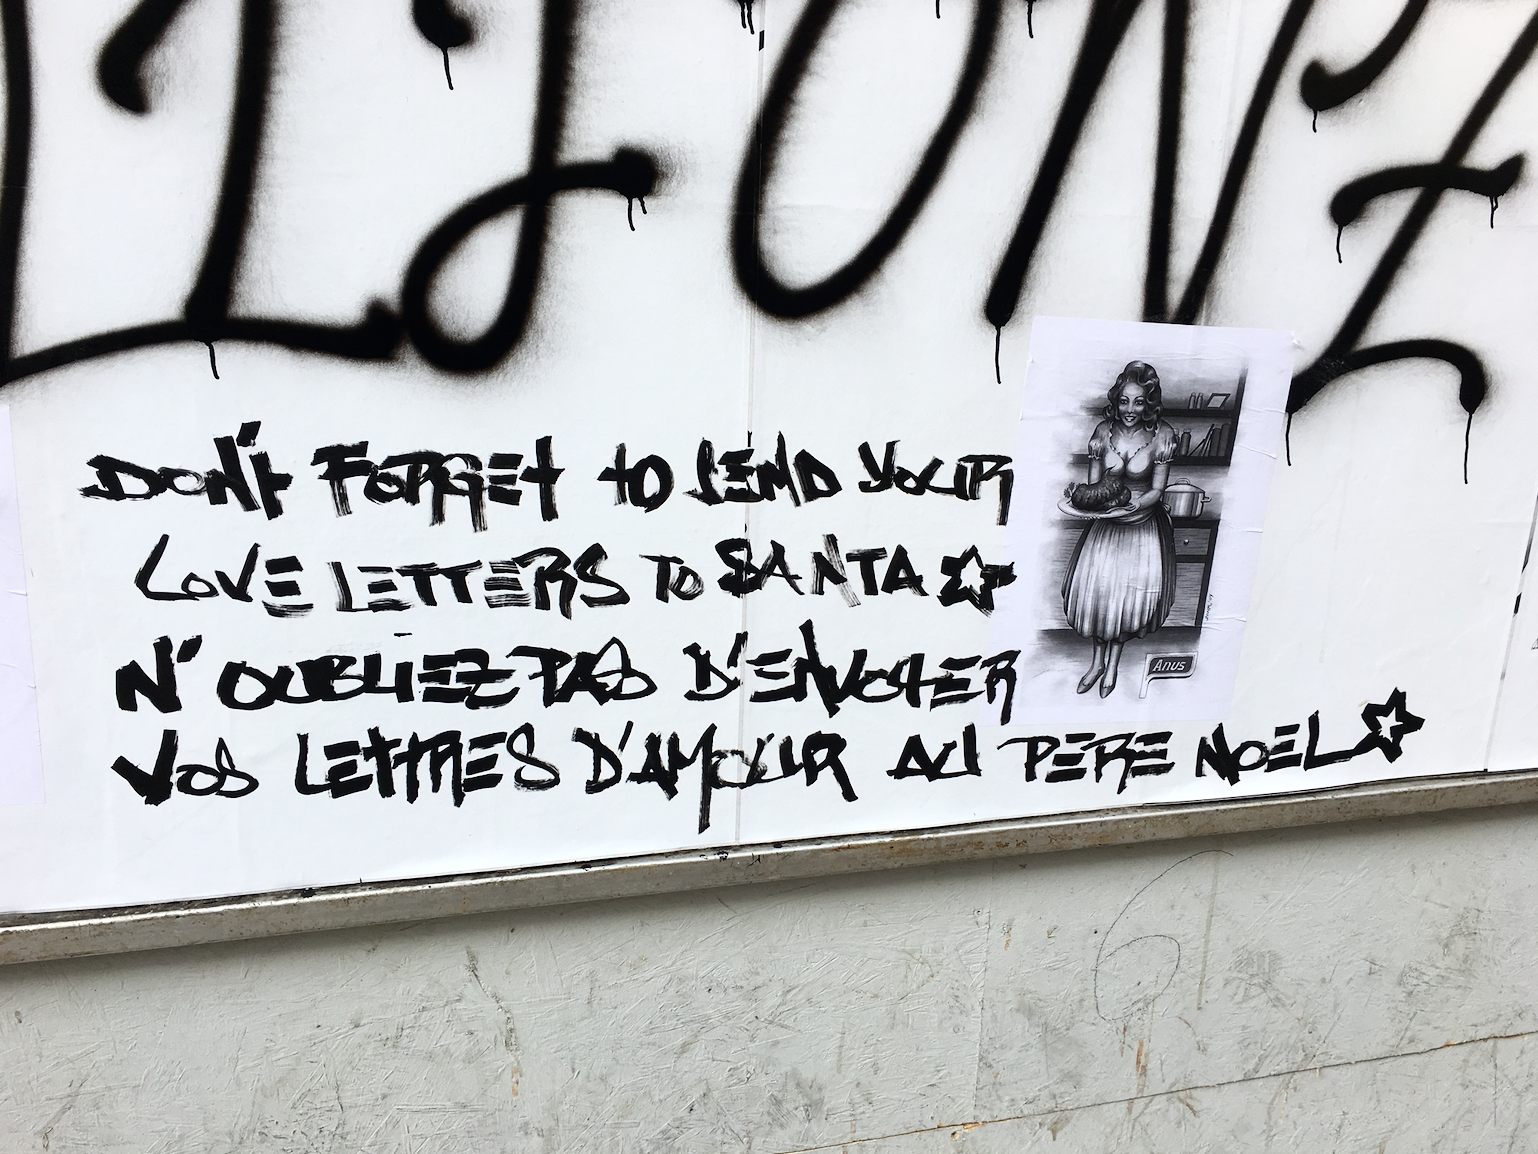 DON'T FORGET TO SEND YOUR
LOVE LETTERS TO SANTA
N'OUBLIEZ PAS D'ENVOYER
VOS LETTRES D'AMOUR AU PERE NOEL
Anus